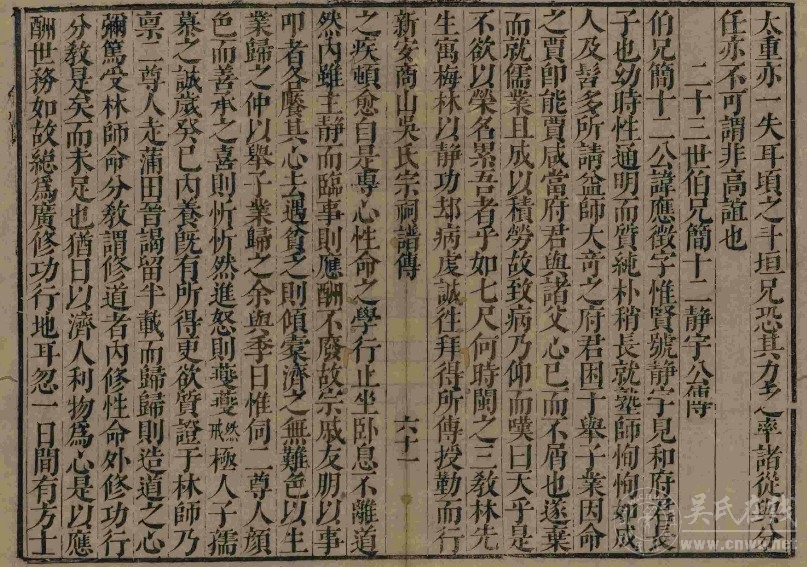 太重亦一失耳頃之斗垣兄恐其力乏率諸從與分
任亦不可謂非高誼也
二十三世伯兄簡十二靜宇公傳
伯兄簡十二公諱應徵字惟賢號靜宇見和府君長
子也幼時性通明而質純朴稍長就塾師恂恂如成
人及髫多所請益師大奇之府君困于舉子業因命
之賈即能賈咸當府君與諸父心已而不屑也遂棄
而就儒業且成以積勞故致病乃仰而嘆曰天乎是
不欲以榮名累吾者乎如七尺何時閩之三教林先
生寓梅林以靜功却病虔誠徃拜得所傳授勤而行
新安商山吳氏宗祠譜傳 六十一
之疾頓愈自是專心性命之學行止坐卧息不離道
然內雖主靜而臨事則應酬不廢故宗戚友朋以事
叩者各饜其心去遇貧乏則傾橐濟之無難色以生
業歸之仲以舉子業歸之余與季日惟伺二尊人顔
色而善承之喜則忻忻然進怒則夔夔然戒極人子孺
慕之誠歲癸巳內養既有所得更欲質證于林師乃
禀二尊人走蒲田晉謁留半載而歸歸則造道之心
彌篤受林師命分教謂修道者內修性命外修功行
分教是矣而未足也猶日以濟人利物爲心是以應
酬世務如故總爲廣修功行地耳忽一日間有方士
吳氏在線
www.cnwu.net